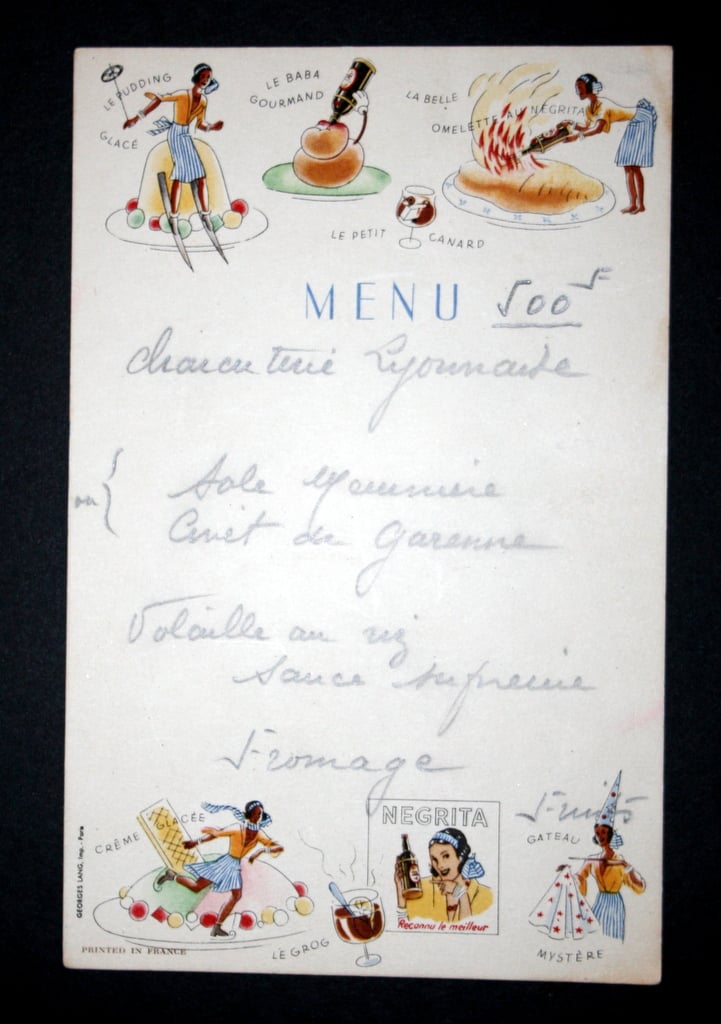 LE PUDDING
GLACÉ
LE BABA
GOURMAND
LA BELLE
OMELETTE AU NEGRITA
LE PETIT CANARD
MENU 500 F
Charcuterie Lyonnaise
ou { Sole Meunière
Civet de Garenne
Volaille au riz
sauce suprême
Fromage
Fruits
CRÈME GLACÉE
LE GROG
NEGRITA
Reconnu le meilleur
GATEAU
MYSTÈRE
GEORGES LANG, Imp. - Paris
PRINTED IN FRANCE